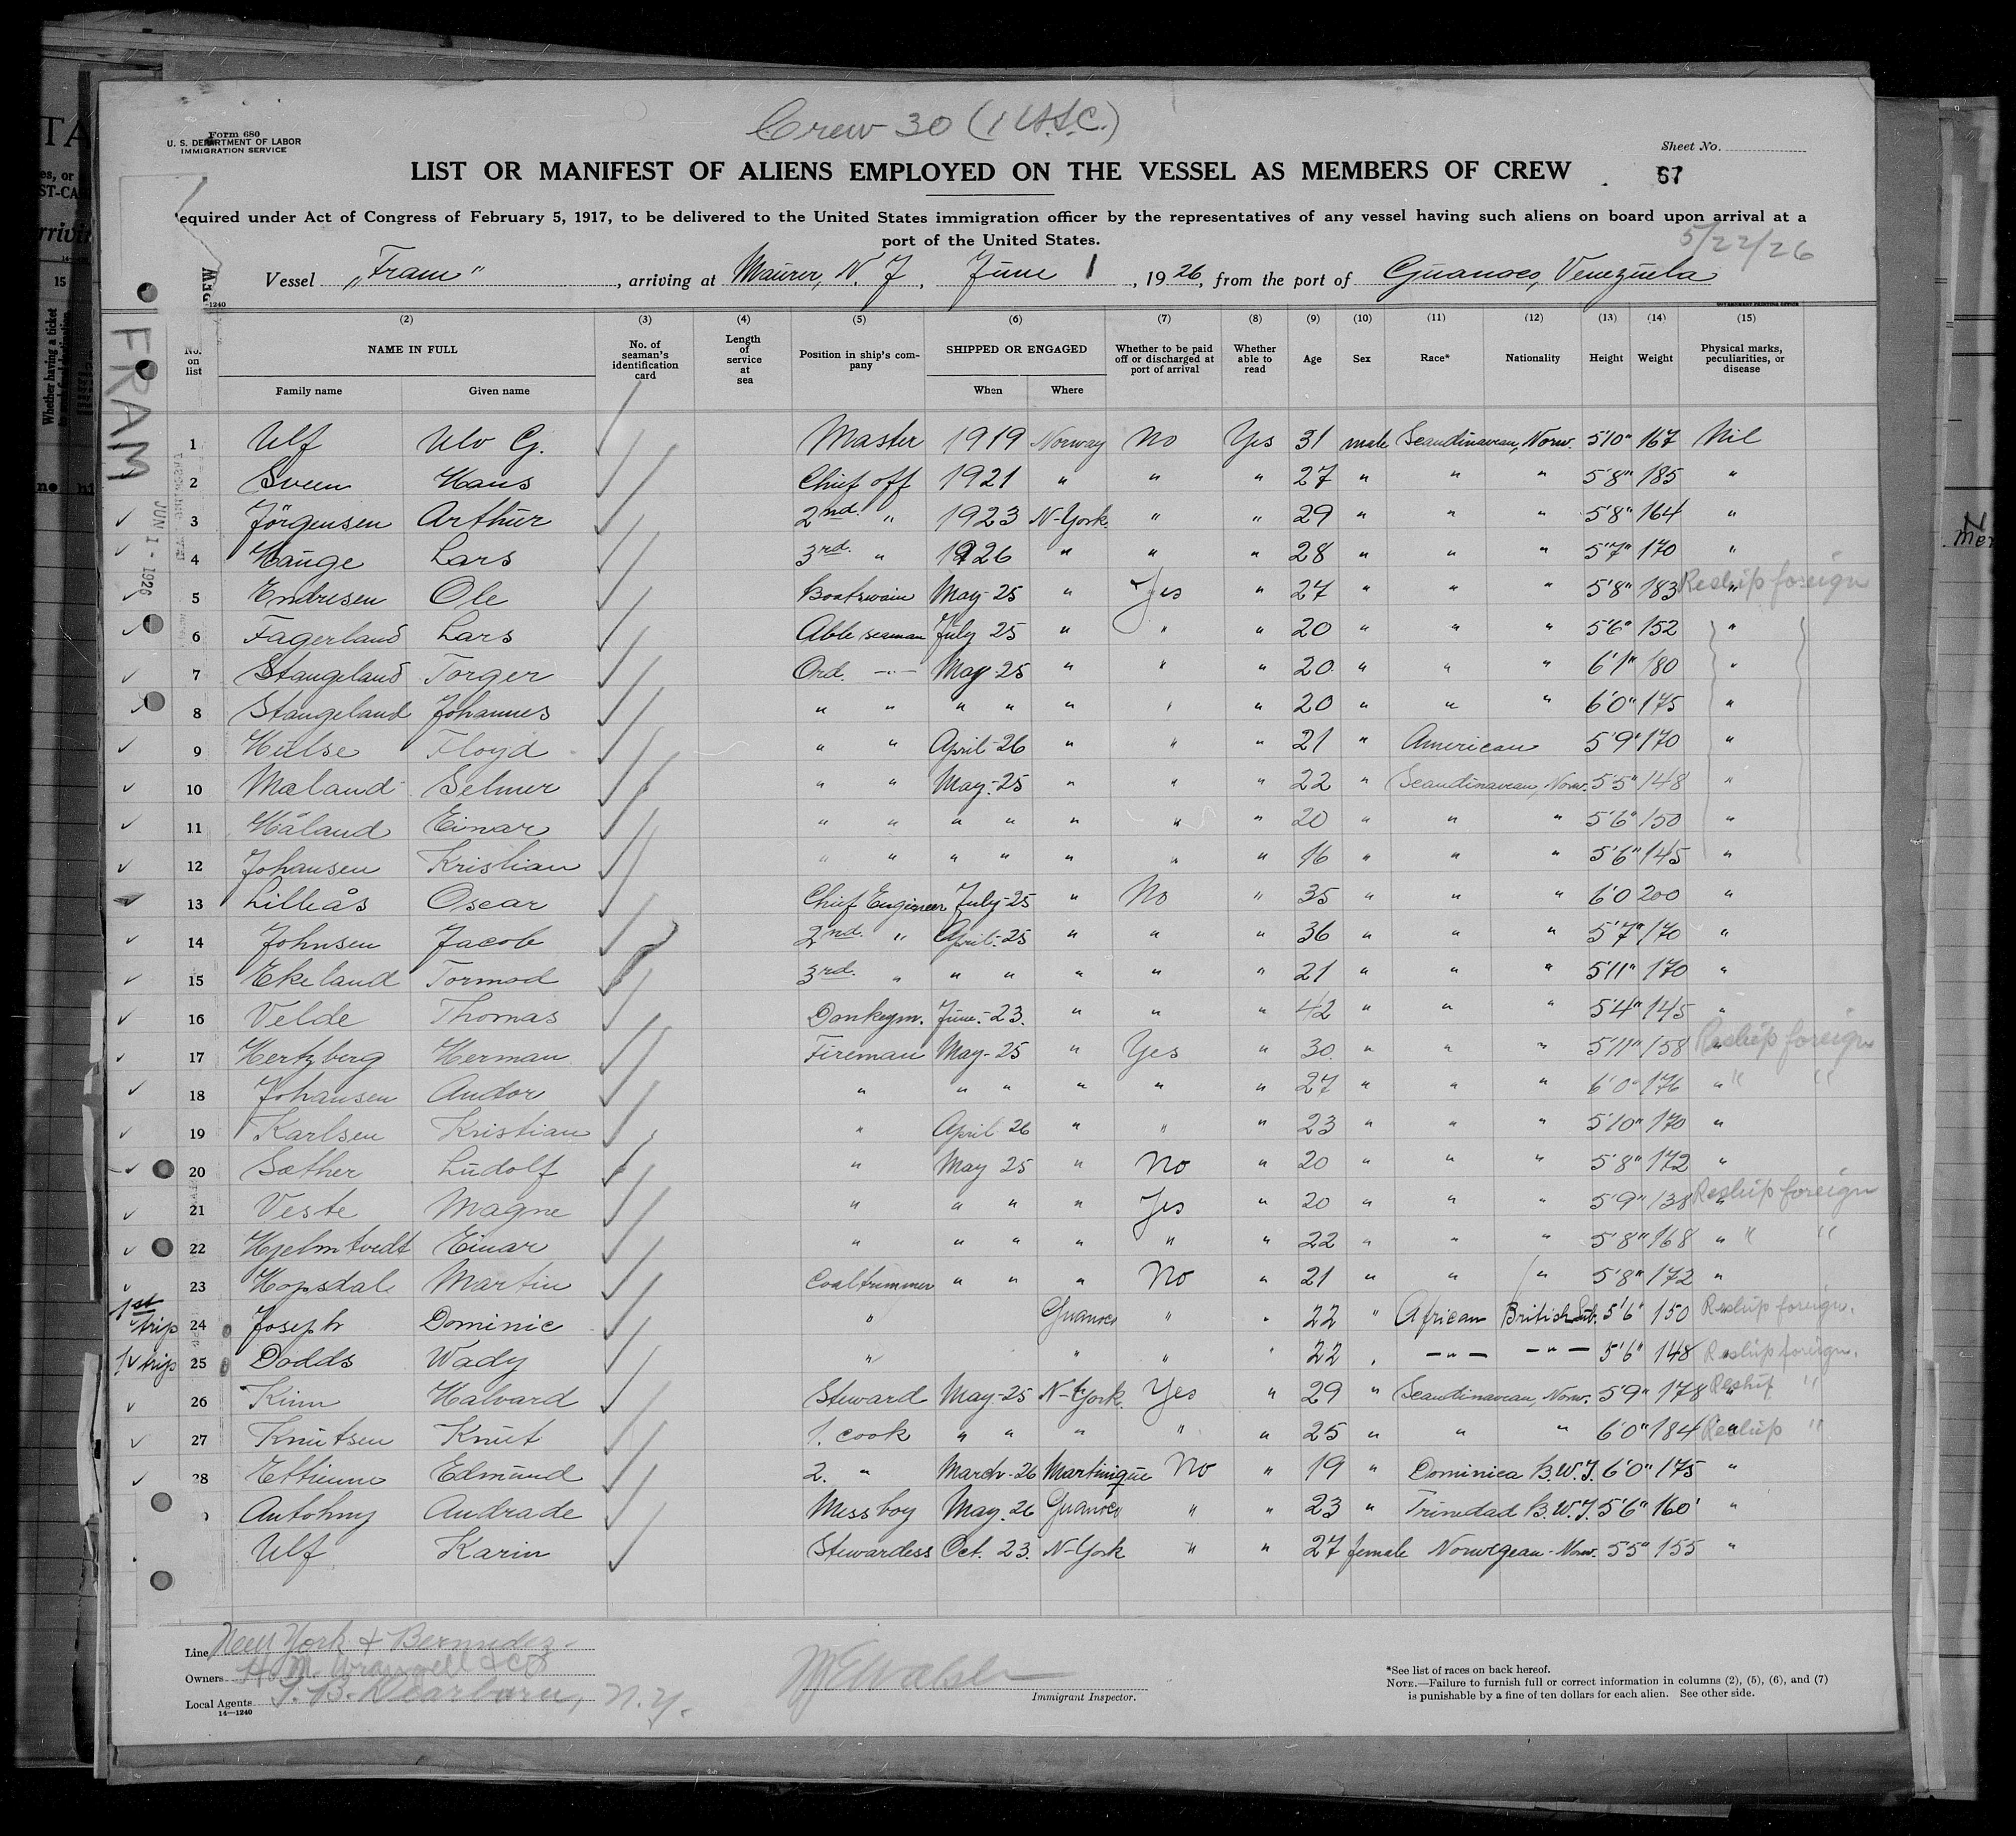 Crew 30 (1 U.S.C.)
Form 680
U. S. DEPARTMENT OF LABOR
IMMIGRATION SERVICE
Sheet No.
LIST OR MANIFEST OF ALIENS EMPLOYED ON THE VESSEL AS MEMBERS OF CREW
67
equired under Act of Congress of February 5, 1917, to be delivered to the United States immigration officer by the representatives of any vessel having such aliens on board upon arrival at a
port of the United States.
5/22/26
Vessel „Fram" , arriving at Maurer, N. J , June 1 , 1926, from the port of Guanoco, Venezuela
FRAM
JUN 1 - 1926
(2) (3) (4) (5) (6) (7) (8) (9) (10) (11) (12) (13) (14) (15)
No. on list NAME IN FULL Family name Given name No. of seaman's identification card Length of service at sea Position in ship's company SHIPPED OR ENGAGED When Where Whether to be paid off or discharged at port of arrival Whether able to read Age Sex Race* Nationality Height Weight Physical marks, peculiarities, or disease
1 Ulf Ulv G. Master 1919 Norway No Yes 31 male Scandinavean, Norw. 5'10" 167 Nil
2 Sveen Hans Chief off 1921 " " " 27 " " " 5'8" 185 "
3 Jörgensen Arthur 2nd. " 1923 N-York " " 29 " " " 5'8" 164 "
4 Hauge Lars 3rd. " 1926 " " " 28 " " " 5'7" 170 "
5 Endresen Ole Boatswain May-25 " Yes " 27 " " " 5'8" 183 " Reship foreign
6 Fagerland Lars Able seaman July 25 " " " 20 " " " 5'6" 152 "
7 Stangeland Torger Ord. -"- May-25 " " " 20 " " " 6'1" 180 "
8 Stangeland Johannes " " " " " " " 20 " " " 6'0" 175 "
9 Hulse Floyd " " April-26 " " " 21 " American 5'9" 170 "
10 Mæland Selmer " " May-25 " " " 22 " Scandinavean, Norw. 5'5" 148 "
11 Håland Einar " " " " " " " 20 " " " 5'6" 150 "
12 Johansen Kristian " " " " " " " 16 " " " 5'6" 145 "
13 Lilleås Oscar Chief Engineer July-25 " No " 35 " " " 6'0 200 "
14 Johnsen Jacob 2nd. " April-25 " " " 36 " " " 5'7" 170 "
15 Ekeland Tormod 3rd. " " " " " " 21 " " " 5'11" 170 "
16 Velde Thomas Donkeym. June-23. " " " 42 " " " 5'4" 145 "
17 Hertzberg Herman Fireman May-25 " Yes " 30 " " " 5'11" 158 " Reship foreign
18 Johansen Andor " " " " " " 27 " " " 6'0" 176 " " "
19 Karlsen Kristian " April 26 " " " 23 " " " 5'10" 170 "
20 Sæther Ludolf " May 25 " No " 20 " " " 5'8" 172 "
21 Veste Magne " " " " Yes " 20 " " " 5'9" 138 " Reship foreign
22 Hjelmtvedt Einar " " " " " " 22 " " " 5'8" 168 " " "
23 Hopsdal Martin Coaltrimmer " " " No " 21 " " " 5'8" 172 "
1st trip 24 Joseph Dominic " Guanoco " " 22 " African British Sub. 5'6" 150 Reship foreign.
1 trip 25 Dodds Wady " " " " 22 " -"- -"- 5'6" 148 Reship foreign.
26 Kinn Halvard Steward May-25 N-York. Yes " 29 " Scandinavean, Norw. 5'9" 178 " Reship "
27 Knutsen Knut 1. cook " " " " " 25 " " " 6'0" 184 " Reship "
28 Ettienne Edmund 2. " March-26 Martinique No " 19 " Dominica B.W.I. 6'0" 175 "
Antohny Andrade Mess boy May. 26 Guanoco " " 23 " Trinedad B.W.I. 5'6" 160 "
Ulf Karin Stewardess Oct. 23. N-York " " 27 female Norwegean - Norw. 5'5" 155 "
Line New York & Bermudez
Owners H. M. Wrangell & Co
Local Agents S. B. Dearborn, N.Y.
14—1240
Immigrant Inspector.
*See list of races on back hereof.
NOTE.—Failure to furnish full or correct information in columns (2), (5), (6), and (7)
is punishable by a fine of ten dollars for each alien. See other side.